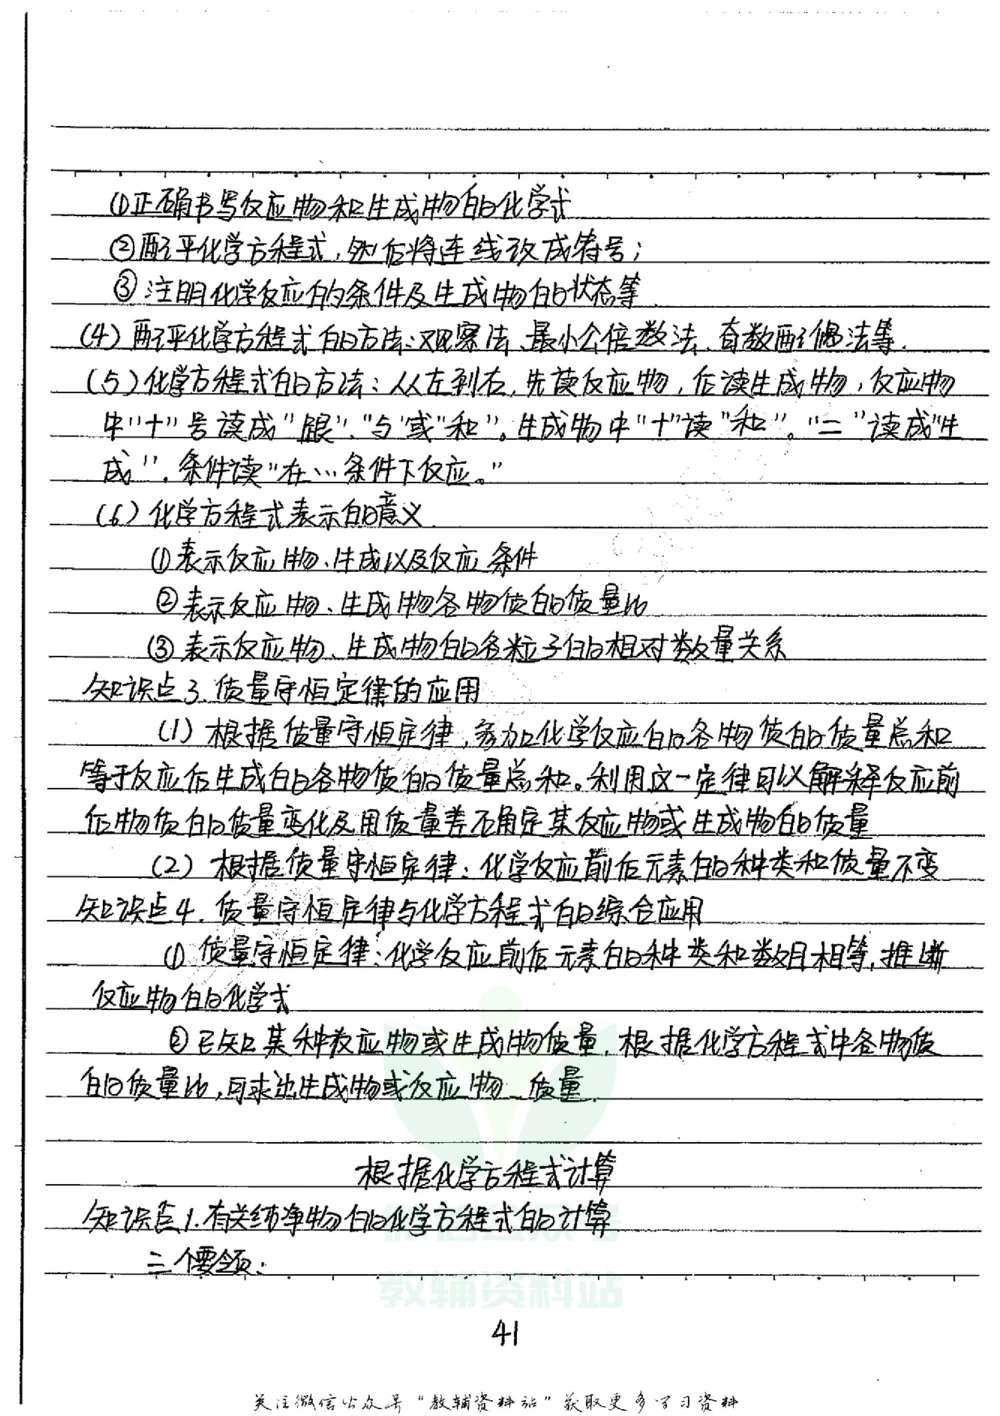 ①正确书写反应物和生成物的化学式
②配平化学方程式,然后将连线改成符号;
③注明化学反应的条件及生成物的状态等
(4)配平化学方程式的方法:观察法、最小公倍数法、奇数配偶法等.
(5)化学方程式的方法:从左到右,先读反应物,后读生成物,反应物
中"+"号读成"跟"、"与"或"和"。生成物中"+"读"和"。"="读成"生
成",条件读"在…条件下反应。"
(6)化学方程式表示的意义
①表示反应物、生成以及反应条件
②表示反应物、生成物各物质的质量比
③表示反应物、生成物的各粒子的相对数量关系
知识点3.质量守恒定律的应用
(1)根据质量守恒定律,参加化学反应的各物质的质量总和
等于反应后生成的各物质的质量总和。利用这一定律可以解释反应前
后物质的质量变化及用质量差确定某反应物或生成物的质量
(2)根据质量守恒定律:化学反应前后元素的种类和质量不变
知识点4.质量守恒定律与化学方程式的综合应用
①质量守恒定律:化学反应前后元素的种类和数目相等,推断
反应物的化学式
②已知某种反应物或生成物质量,根据化学方程式中各物质
的质量比,可求出生成物或反应物 质量.
根据化学方程式计算
知识点1.有关纯净物的化学方程式的计算
三个要领:
微信公众号
教辅资料站
41
关注微信公众号"教辅资料站"获取更多学习资料